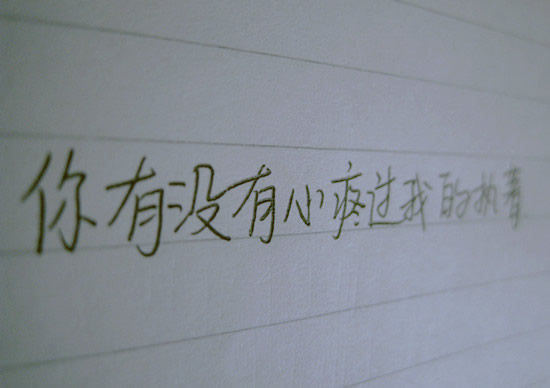 你有没有心疼过我的执着